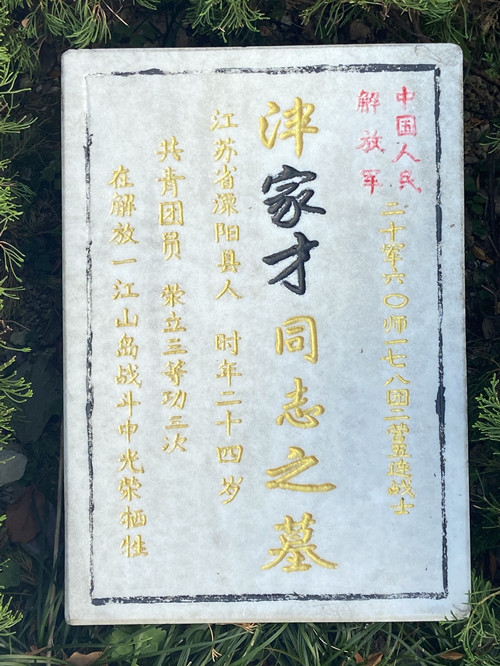 中国人民
解放军
二十军六〇师一七八团二营五连战士
津家才同志之墓
江苏省溧阳县人 时年二十四岁
共青团员 荣立三等功三次
在解放一江山岛战斗中光荣牺牲